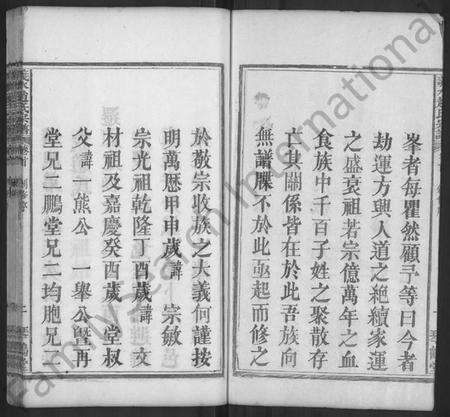 峯者每瞿然顧予等曰今者
劫運方與人道之絶續家運
之盛衰祖若宗億萬年之血
食族中千百子姓之聚散存
亡其關係皆在於此吾族向
無譜牒不於此亟起而修之
於敬宗收族之大義何謹按
明萬厯甲申歲諱 宗敏
宗光祖乾隆丁酉歲諱 文
材祖及嘉慶癸酉歲 堂叔
父諱元熊公一舉公暨再
堂兄三鵬堂兄二均胞兄二
Family Search International